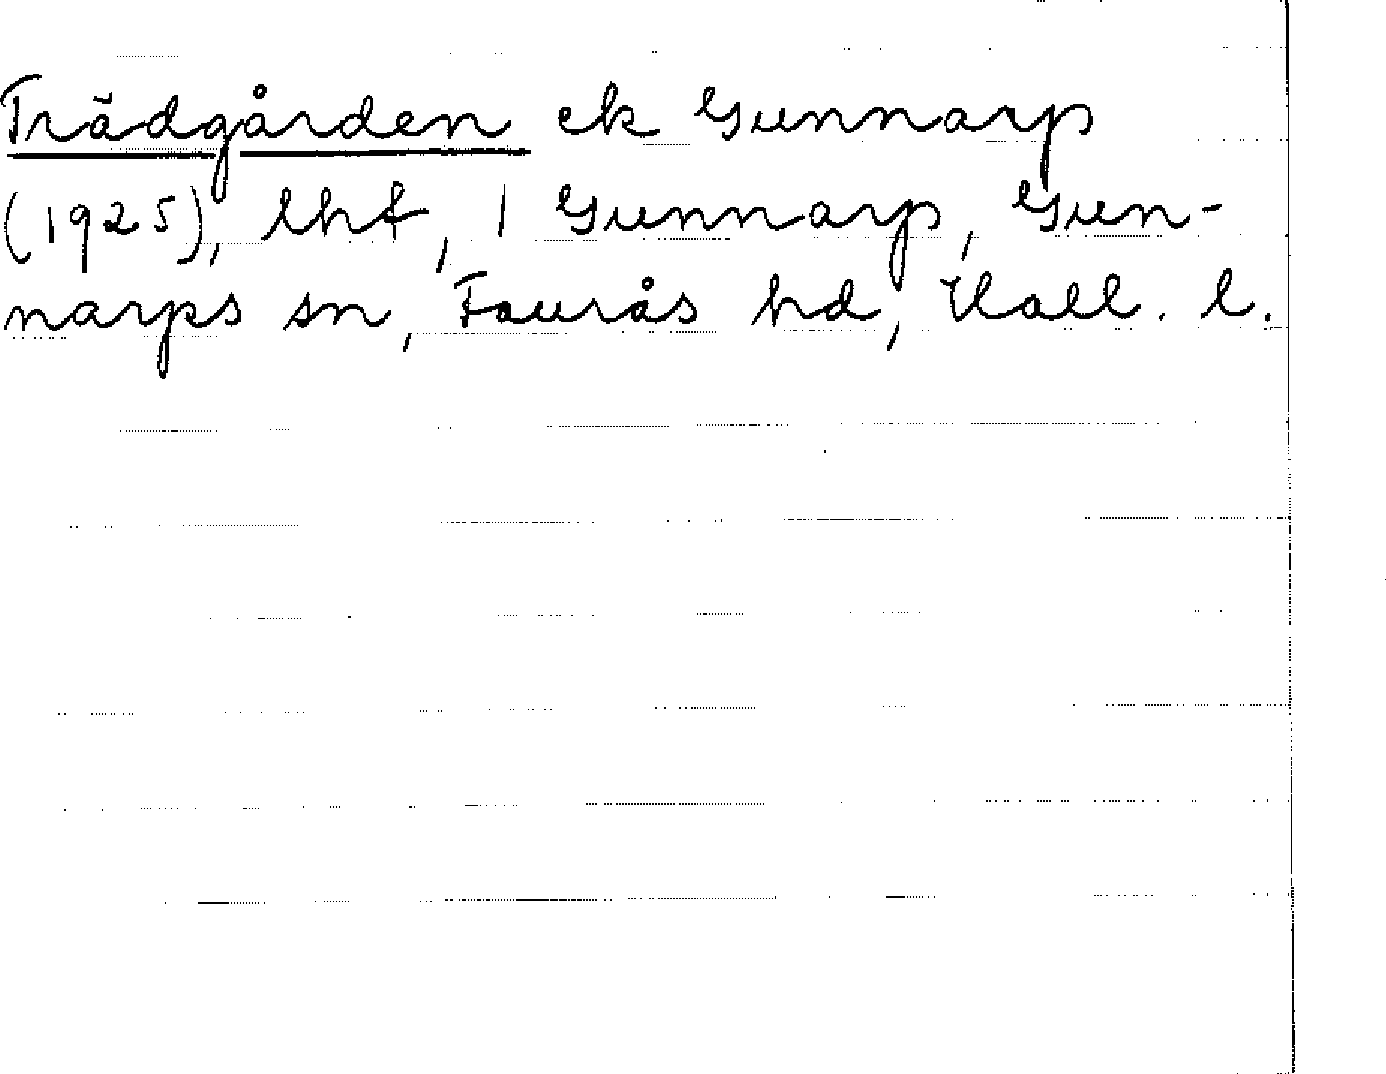 Trädgården ek Gunnarp
(1925), lht, 1 Gunnarp, Gun-
narps sn, Faurås hd, Hall. l.